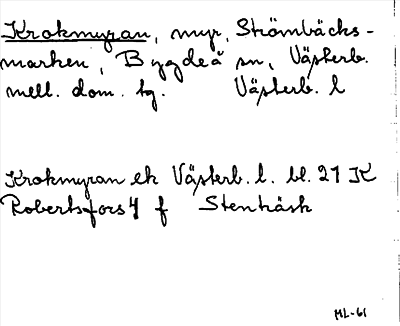 Krokmyran, myr, Strömbäcks-
marken, Bygdeå sn, Västerb.
mell. dom. tg. Västerb. l
Krokmyran ek Västerb. l. bl. 21 K
Robertsfors 4 f Stenträsk
ML-61